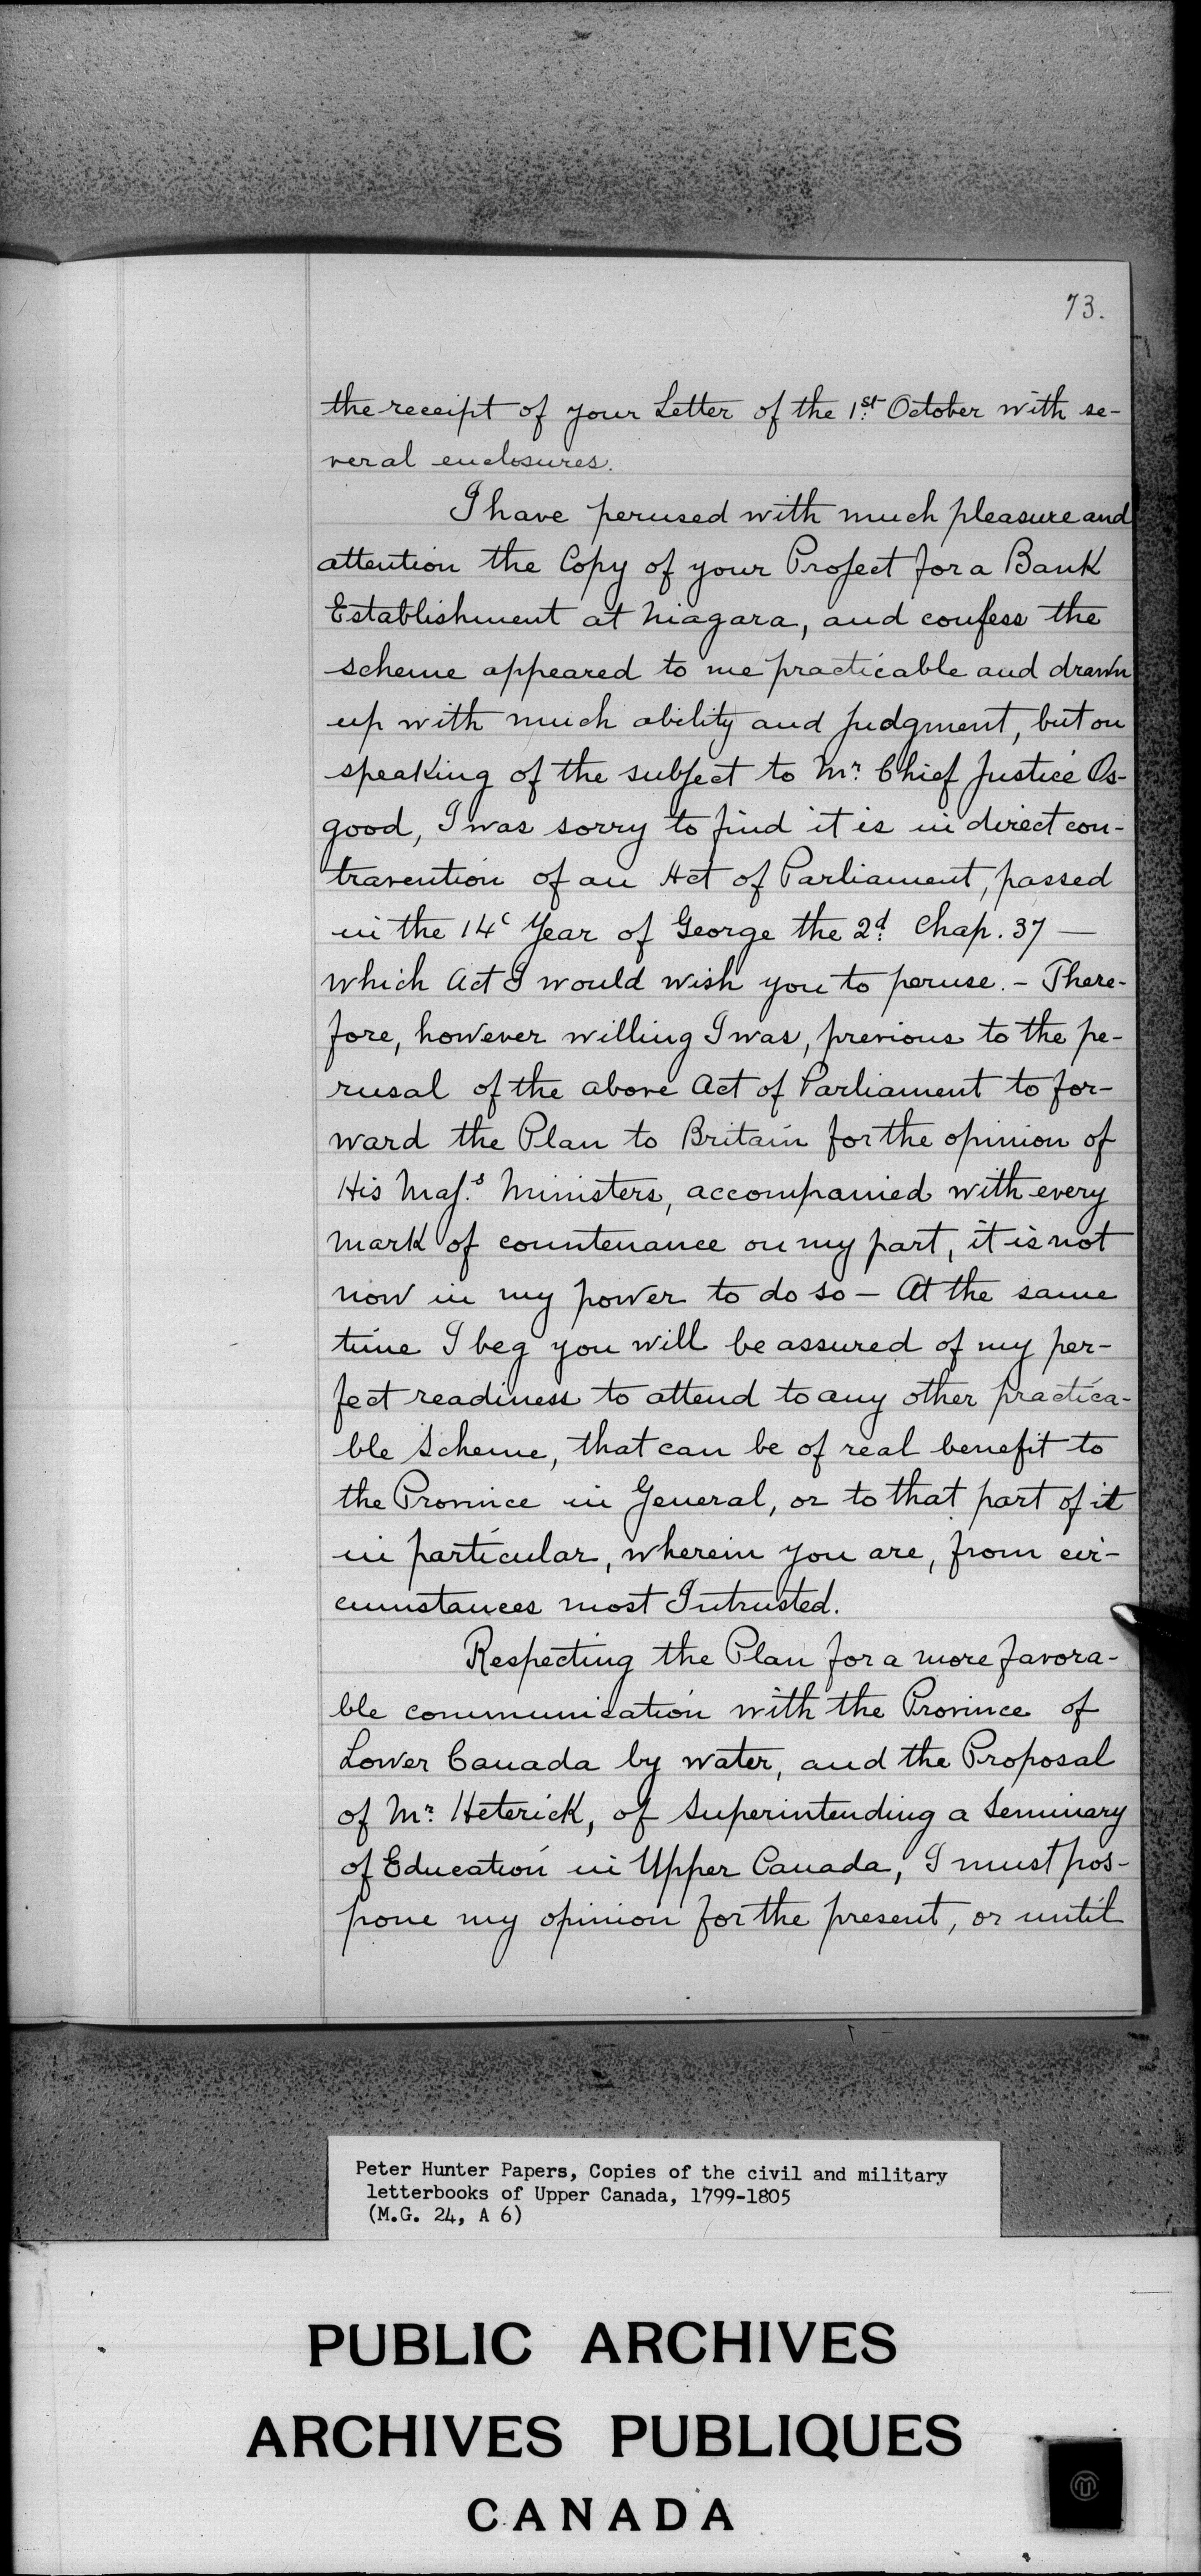 73.
the receipt of your Letter of the 1st October with se-
veral enclosures.
I have perused with much pleasure and
attention the Copy of your Project for a Bank
Establishment at Niagara, and confess the
scheme appeared to me practicable and drawn
up with much ability and judgment, but on
speaking of the subject to Mr. Chief Justice Os-
good, I was sorry to find it is in direct con-
travention of an Act of Parliament, passed
in the 14c Year of George the 2d. Chap. 37 —
which Act I would wish you to peruse. - There-
fore, however willing I was, previous to the pe-
rusal of the above Act of Parliament to for-
ward the Plan to Britain for the opinion of
His Maj.s Ministers, accompanied with every
mark of countenance on my part, it is not
now in my power to do so — At the same
time I beg you will be assured of my per-
fect readiness to attend to any other practica-
ble Scheme, that can be of real benefit to
the Province in General, or to that part of it
in particular, wherein you are, from cir-
cumstances most Intrusted.
Respecting the Plan for a more favora-
ble communication with the Province of
Lower Canada by water, and the Proposal
of Mr. Heterick, of Superintending a Seminary
of Education in Upper Canada, I must pos-
pone my opinion for the present, or until
Peter Hunter Papers, Copies of the civil and military
letterbooks of Upper Canada, 1799-1805
(M.G. 24, A 6)
PUBLIC ARCHIVES
ARCHIVES PUBLIQUES
CANADA